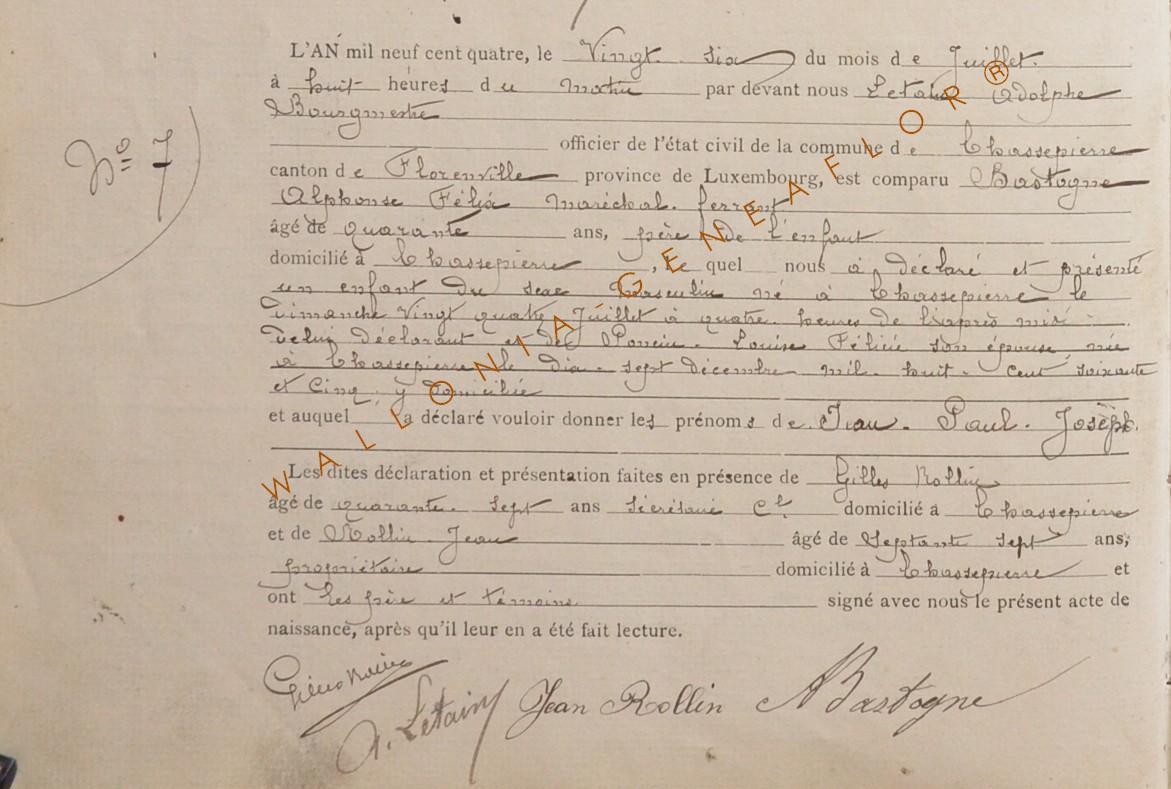 No 7
L'AN mil neuf cent quatre, le Vingt six du mois de Juillet.
à huit heures du matin par devant nous Letain Adolphe
Bourgmestre
officier de l'état civil de la commune de Chassepierre
canton de Florenville province de Luxembourg, est comparu Bastogne
Alphonse Félix maréchal ferrant
âgé de quarante ans, père de l'enfant
domicilié à Chassepierre, le quel nous a déclaré et présenté
un enfant du sexe masculin né à Chassepierre le
dimanche Vingt quatre Juillet à quatre heures de l'après midi
de lui déclarant et de Poncin Louise Félicie son épouse née
à Chassepierre le dix-sept décembre mil-huit-cent soixante
et cinq, y domiciliée
et auquel a déclaré vouloir donner les prénoms de Jean-Paul-Joseph.
Les dites déclaration et présentation faites en présence de Gilles Rollin
âgé de quarante-sept ans Secrétaire Cl domicilié à Chassepierre
et de Rollin Jean âgé de Septante sept ans,
propriétaire domicilié à Chassepierre et
ont les père et témoins signé avec nous le présent acte de
naissance, après qu'il leur en a été fait lecture.
A. Letain Jean Rollin A Bastogne
WALLONIA GENEAFLOR®